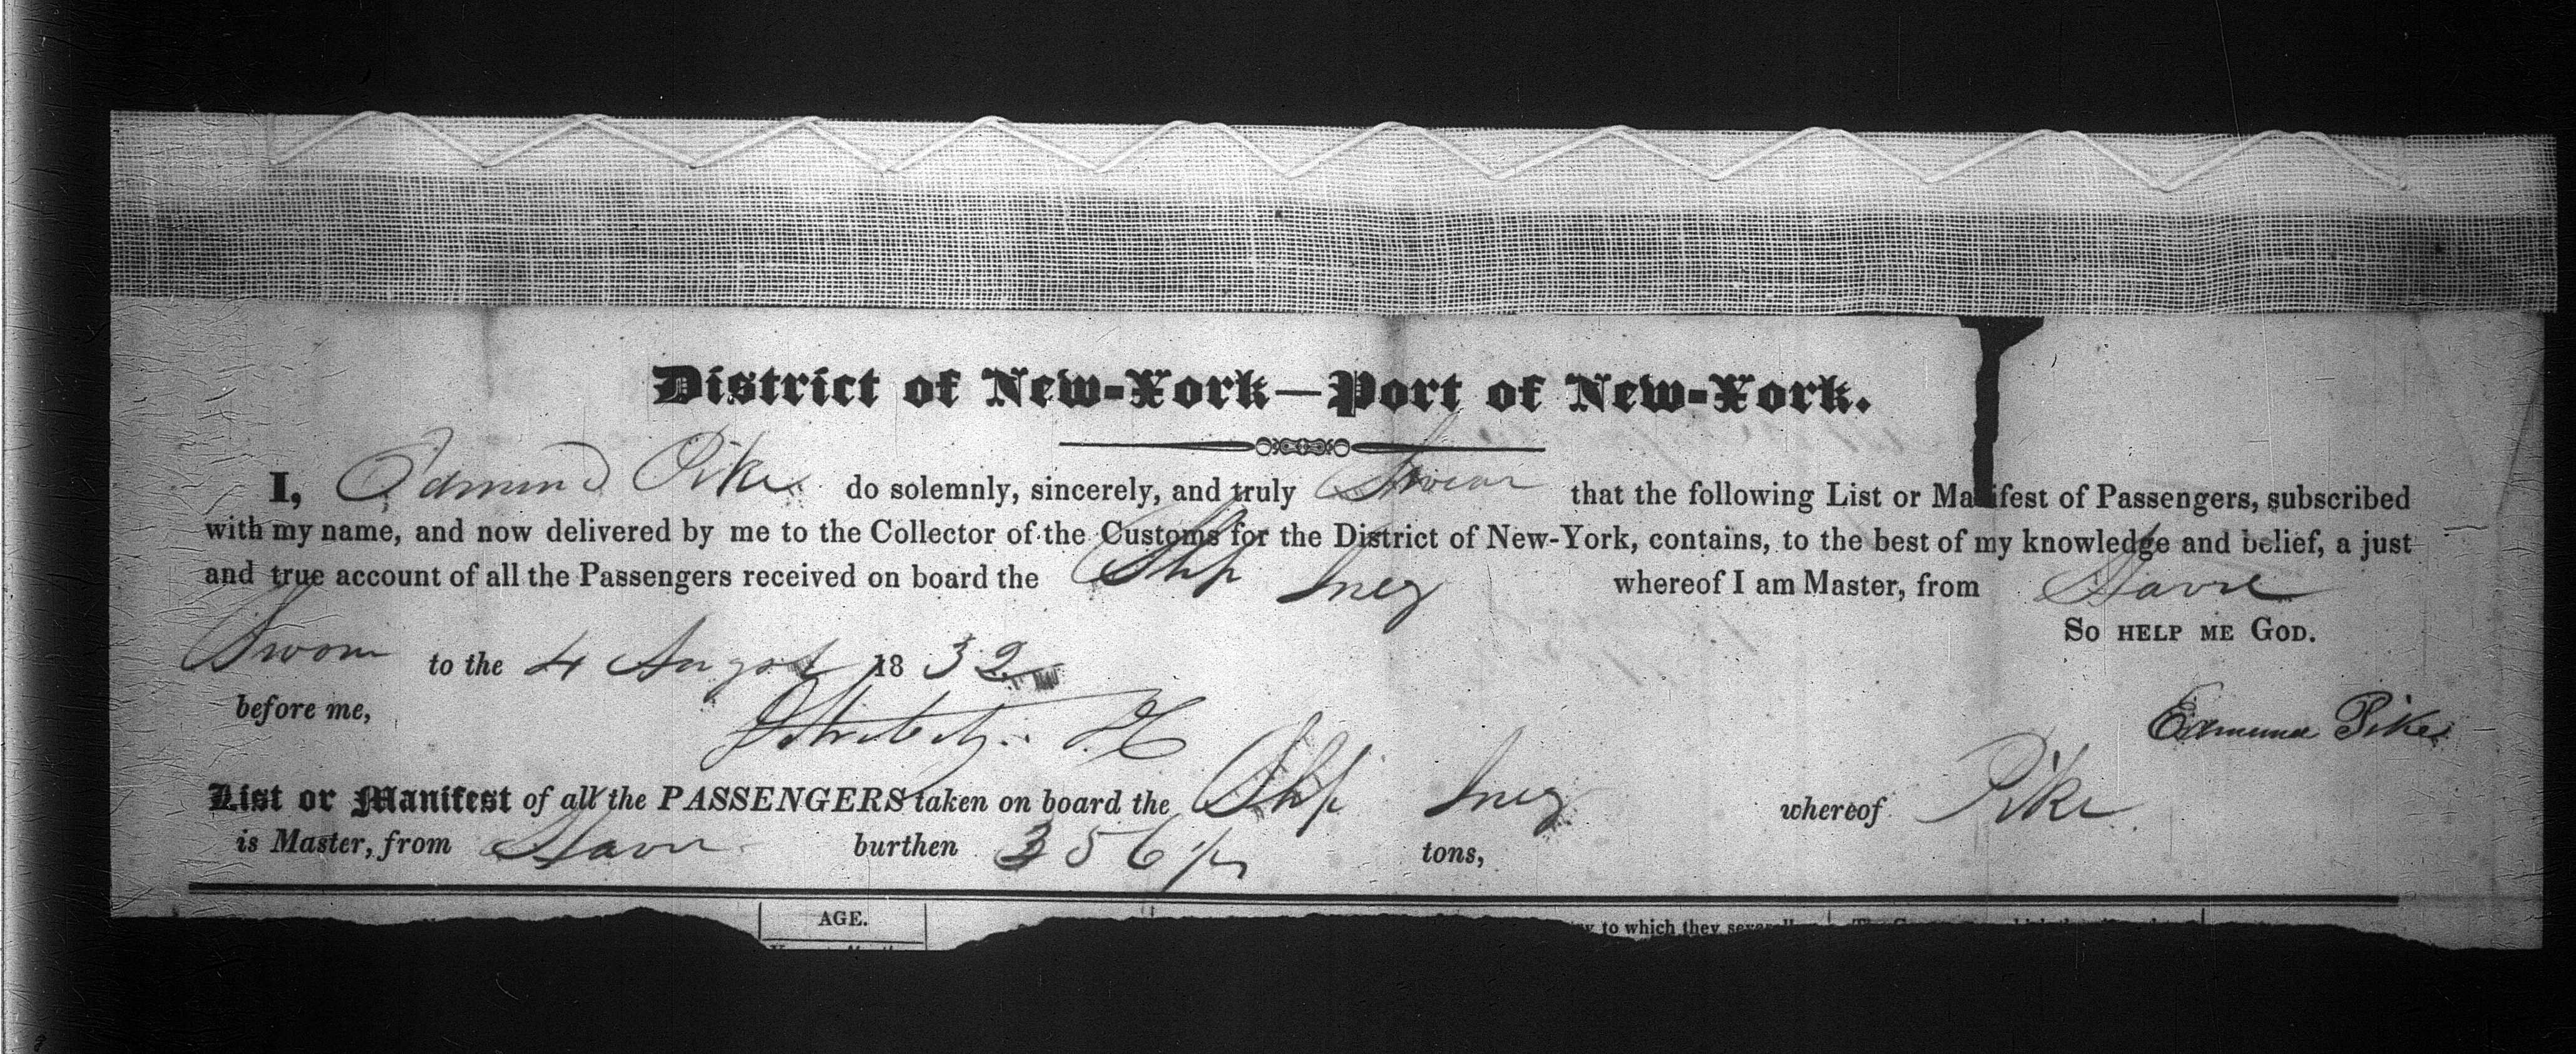 District of New-York—Port of New-York.
I, Edmund Pike do solemnly, sincerely, and truly Swear that the following List or Manifest of Passengers, subscribed
with my name, and now delivered by me to the Collector of the Customs for the District of New-York, contains, to the best of my knowledge and belief, a just
and true account of all the Passengers received on board the Ship Inez whereof I am Master, from Havre
So help me God.
Sworn to the 4 August 1832
before me,
Edmund Pike
List or Manifest of all the PASSENGERS taken on board the Ship Inez whereof Pike
is Master, from Havre burthen 356 tons,
AGE.
to which they